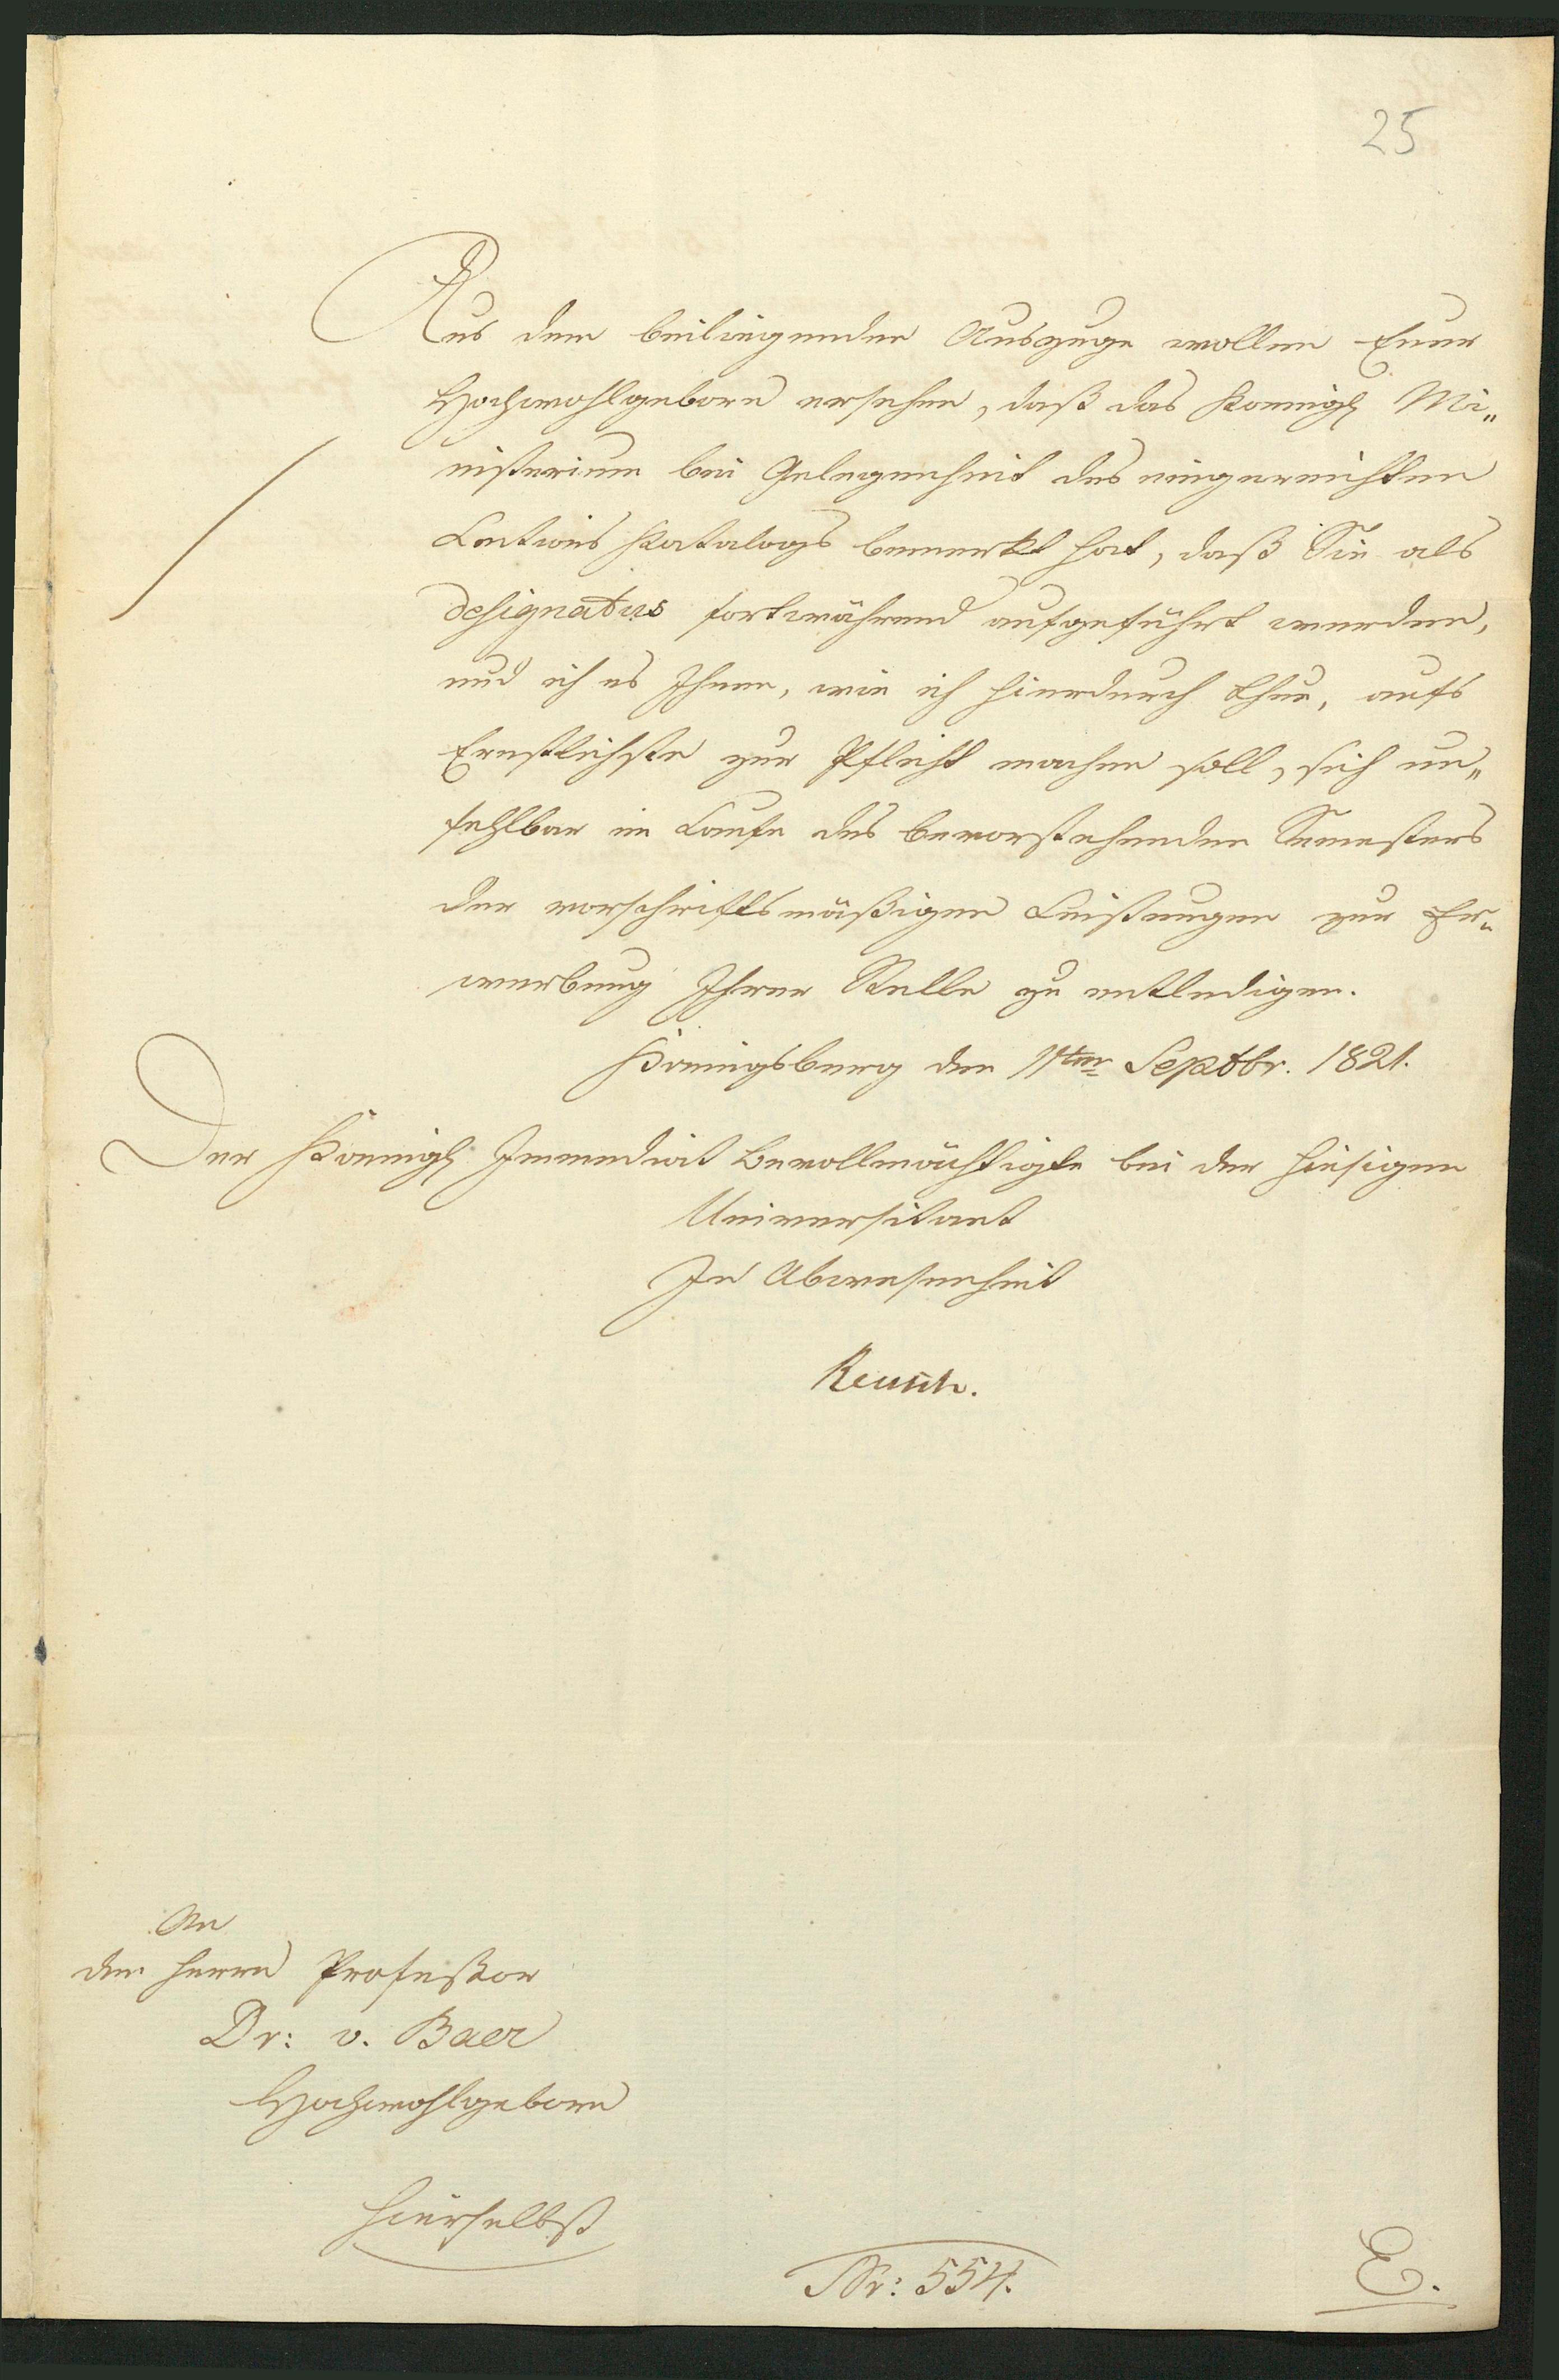 25
Aus dem beiliegenden Auszuge wollen Euer
Hochwohlgeborn ersehen, daß das Koenigl Mi„
nisterium bei Gelegenheit des eingereichten
Lections Katalogs bemerkt hat, daß Sie als
designatus fortwährend aufgeführt werden,
und ich es Ihnen, wie ich hierdurch thue, aufs
Ernstlichste zur Pflicht machen soll, sich un„
fehlbar im Laufe des bevorstehenden Semesters
der vorschriftsmäßigen Leistungen zur Er„
werbung Ihrer Stelle zu entledigen.
Koenigsberg den 11ten Septbr. 1821.
Der Koenigl Immediat Bevollmächtigte bei der hiesigen
Universitaet
In Abwesenheit
Reusch.
An
den Herrn Profeßor
Dr: v. Baer
Hochwohlgeborn
hierselbst
Nr: 554.
E.